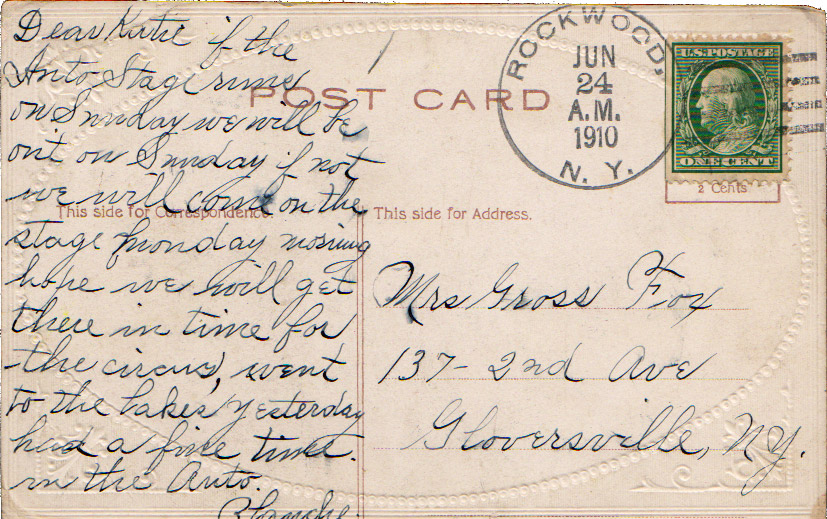 Dear Katie if the
Auto Stage runs
on Sunday we will be
out on Sunday if not
we will come on the
stage Monday morning
hope we will get
there in time for
the circus, went
to the lakes yesterday
had a fine time.
in the Auto.
Blanche.
POST CARD
This side for Correspondence.
This side for Address.
ROCKWOOD,
JUN
24
A.M.
1910
N. Y.
U.S. POSTAGE
ONE CENT
2 Cents
Mrs Gross Fox
137- 2nd Ave
Gloversville, NY.